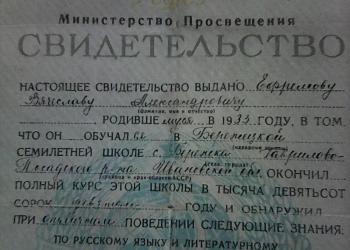 Министерство Просвещения
СВИДЕТЕЛЬСТВО
НАСТОЯЩЕЕ СВИДЕТЕЛЬСТВО ВЫДАНО Ефремову
Вячеславу Александровичу
(фамилия, имя и отчество)
РОДИВШЕмуся В 1933 ГОДУ, В ТОМ,
ЧТО ОН ОБУЧАЛся В Берепицкой
СЕМИЛЕТНЕЙ ШКОЛЕ с. Гаврилово-
Посадского р-на Ивановской обл. ОКОНЧИЛ
ПОЛНЫЙ КУРС ЭТОЙ ШКОЛЫ В ТЫСЯЧА ДЕВЯТЬСОТ
СОРОК девятом ГОДУ И ОБНАРУЖИЛ
ПРИ отличном ПОВЕДЕНИИ СЛЕДУЮЩИЕ ЗНАНИЯ:
ПО РУССКОМУ ЯЗЫКУ И ЛИТЕРАТУРНОМУ